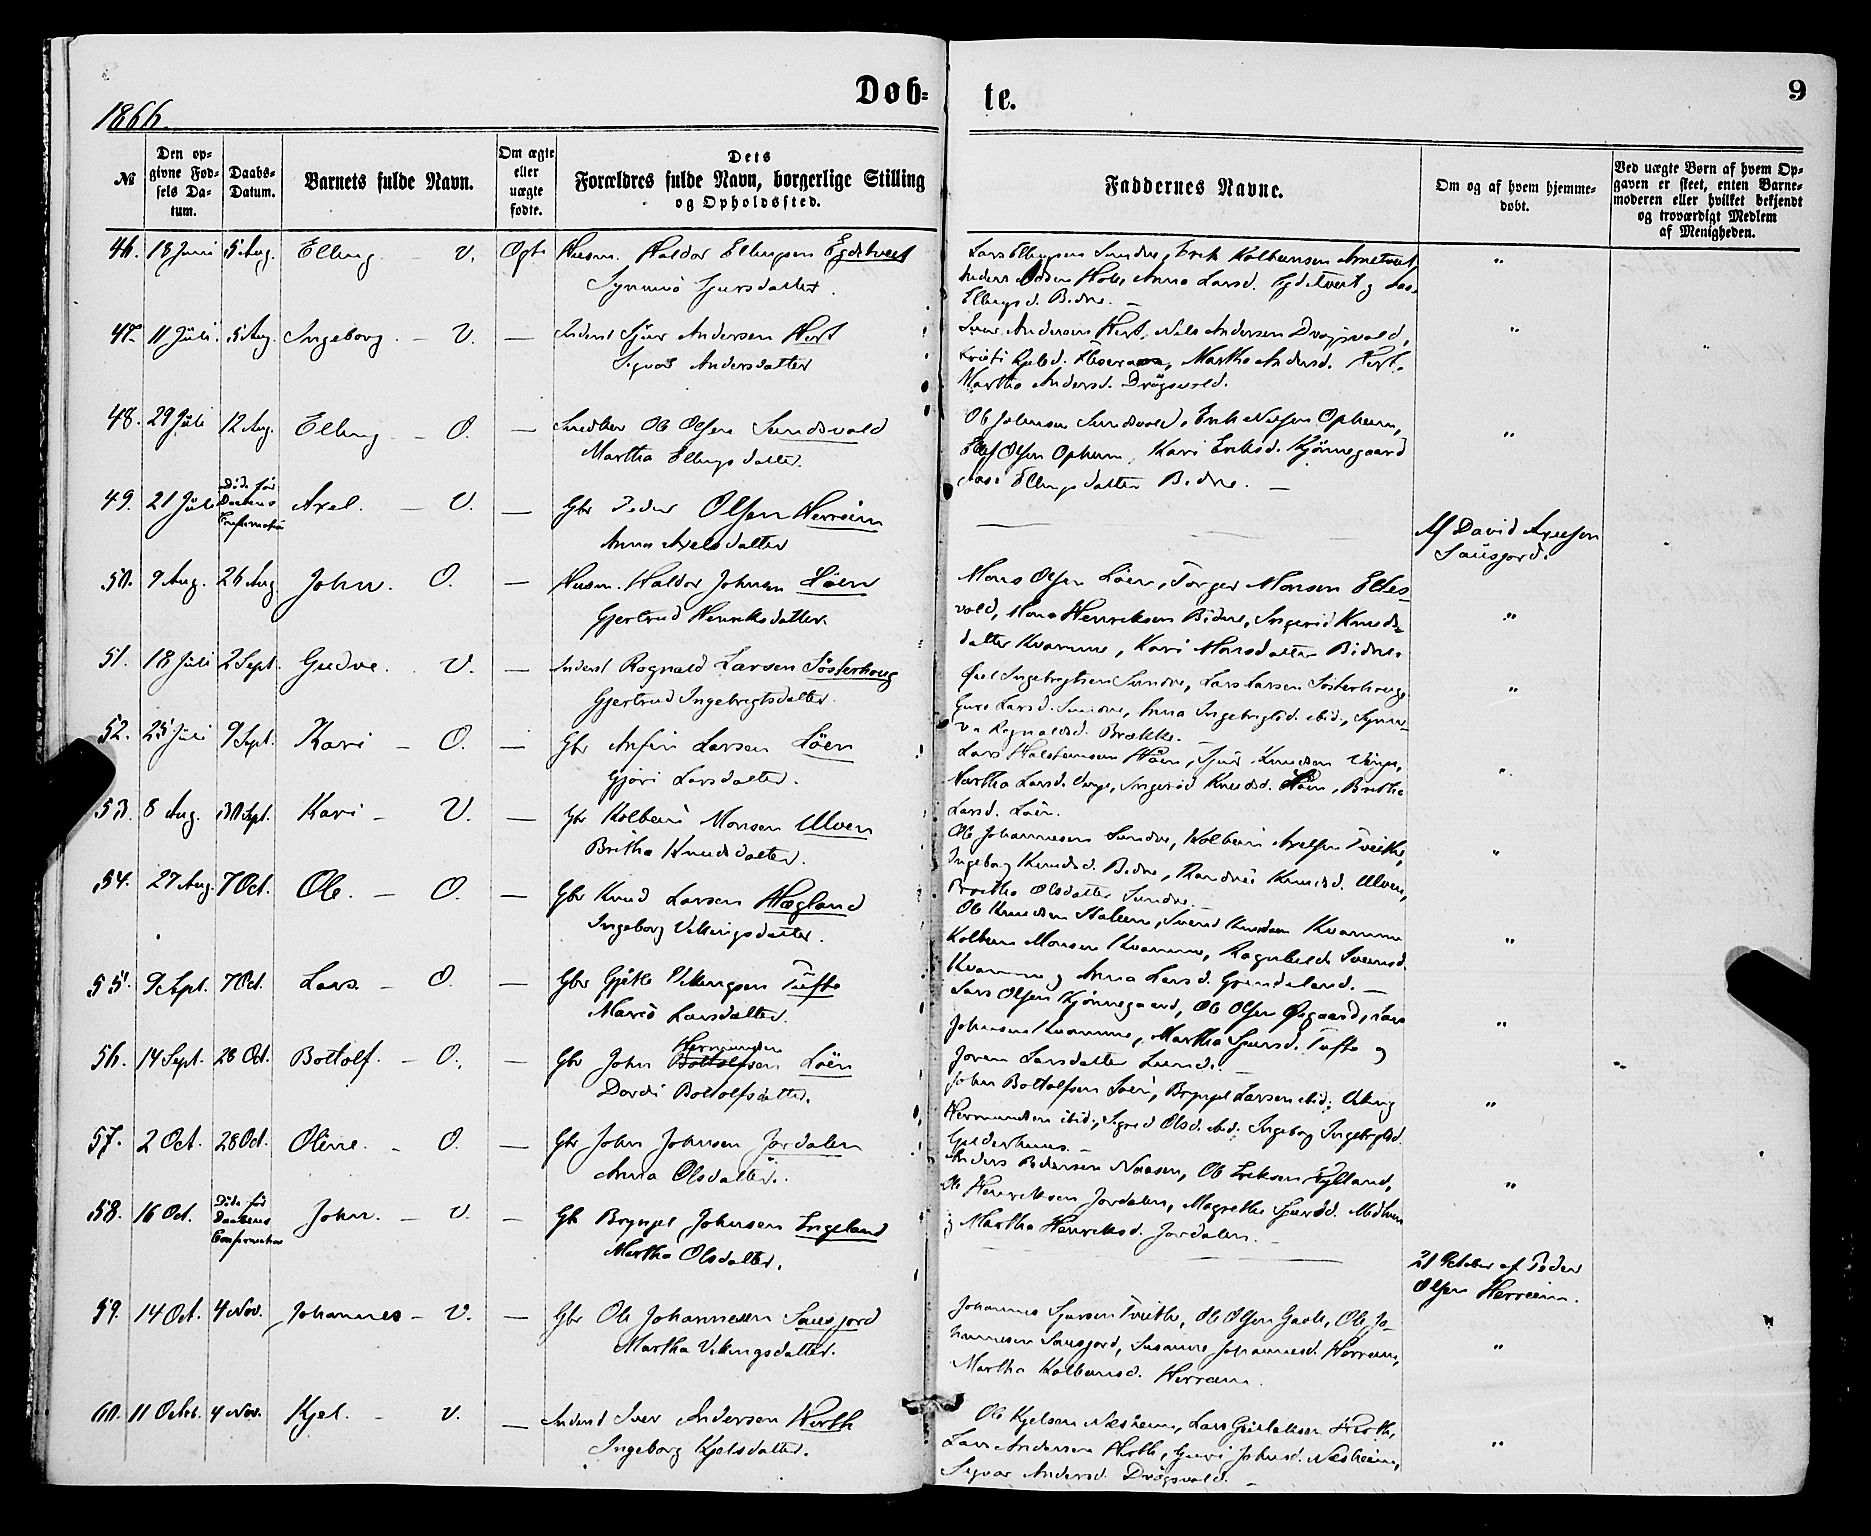 Døb-
te.
9
1866.
№
Den op-
givne Fød-
sels Da-
tum.
Daabs-
Datum.
Barnets fulde Navn.
Om ægte
eller
uægte
fødte.
Dets
Forældres fulde Navn, borgerlige Stilling
og Opholdssted.
Faddernes Navne.
Om og af hvem hjemme-
døbt.
Ved uægte Børn af hvem Op-
gaven er skeet, enten Barne-
moderen eller hvilket bekjendt
og troværdigt Medlem
af Menigheden.
46. 18 Juni 5 Aug. Elling. - V. Ægte Husm. Haldor Ellingsen
Lars Ellingsen Sundve, Erik Kolbensen
Anna Larsd.
Ellingsd. Bidne. "
47. 11 Juli. 5 Aug. Ingeborg. - V. — Inderst Sjur Andersen Hert
Andersdatter
Andersen Hert, Nels Andersen
Martha Andersd. Hert,
Martha Andersd. Drøgsvold. "
48. 29 Juli 12 Aug. Elling. - O. — Ole Olsen Sundsvold
Martha Ellingsdatter.
Ole Johnsen Sundsvold, Erik Nelsen Opheim,
Olsen Opheim, Kari Eriksd. Kjønnegaard
Ellingsdatter Bidne. — "
49. 21 Juli Døde før Daabens Confirmation Axel. - V. — Gbr Peder Olsen Herreim
Anna Axelsdatter
Af David Axelsen
Sausjord.
50. 9 Aug. 26 Aug John. O. — Husm. Haldor Johnsen Löen
Gjertrud Henriksdatter.
Mons Olsen Löen, Torger Monsen Eldes-
vold, Mons Henriksen Bidne, Ingerid Knuds-
datter Kvamme, Kari Monsdatter Bidne. "
51. 18 Juli 2 Sept. Gudve. V. — Inderst Ragnald Larsen Sösterhoug
Gjertrud Ingebregtsdatter.
Ingebregtsen Sundve, Lars Larsen Sösterhoug,
Guro Larsd. Sundve, Anna Ingebregtsd. ibid,
Ragnaldsd. Brække. "
52. 25 Juli 9 Sept. Kari - O. — Gbr Anfin Larsen Löen
Gjøri Larsdatter.
Lars Halstensen Löen, Sjur Knudsen Vinje,
Martha Larsd. Vinje, Ingerid Knudsd. Löen, Britha
Larsd. Löen. "
53. 8 Aug. 30 Sept. Kari - V. — Gbr Kolbein Monsen Ulven
Britha Knudsdatter.
Ole Johannesen Sundve, Kolbein Axelsen Tveithe,
Ingeborg Knudsd. Bidne, Randvei Knudsd. Ulven,
Britha Olsdatter Sundve. — "
54. 27 Aug. 7 Oct. Ole. - O. — Gbr Knud Larsen Hægland
Ingeborg Vikingsdatter.
Ole Knudsen Saleim, Svend Knudsen Kvamme
Kolbein Monsen Kvamme, Ragnhild Svensd.
Kvamme og Anna Larsd. Grindeland. — "
55. 9 Sept. 7 Oct. Lars. - O. — Gbr Gjøtle Vikingsen Tufte
Mario Larsdatter.
Lars Olsen Kjønnegaard, Ole Olsen Øvsgaard, Lars
Johnsen Kvamme, Martha Sjursd. Tufte og
Larsdatter Lund. — "
56. 14 Sept. 28 Oct. Bottolf. - O. — Gbr John Bottolfsen Hermundsen Löen
Dordi Bottolfsdatter.
John Bottolfsen Löen, Brynjel Larsen ibid, Viking
Hermundsen ibid., Sigrid Olsd. ibid, Ingeborg Ingebregtsd.
Gjelderhuus. — "
57. 2 Oct. 28 Oct. Oline. - O. — Gbr John Johnsen Jordalen
Anna Olsdatter.
Anders Pedersen Naasen, Ole Eriksen Fylland,
Ole Henriksen Jordalen, Magrethe Sjursd.
og Martha Henriksd. Jordalen. — "
58. 16 Oct. Døde før Daabens Confirmation John. - V. — Gbr Brynjel Johnsen Ingeland
Martha Olsdatter.
21 October af Peder
Olsen Herreim.
59. 14 Oct. 4 Nov. Johannes - V. — Gbr Ole Johannesen Sausjord
Martha Vikingsdatter.
Johannes Sjursen Tveithe, Ole Olsen Gavle, Ole Jo-
hannesen Sausjord, Susanne Johannesd. Herreim,
Martha Kolbensd. Herreim. "
60. 11 Octbr. 4 Nov. Kjel. - V. — Inderst Iver Andersen Herth
Ingeborg Kjelsdatter.
Ole Kjelsen Næsheim, Lars Herth,
Lars Andersen Herth, Guri Johnsd. Næsheim,
Andersd. Drøgsvold. — "